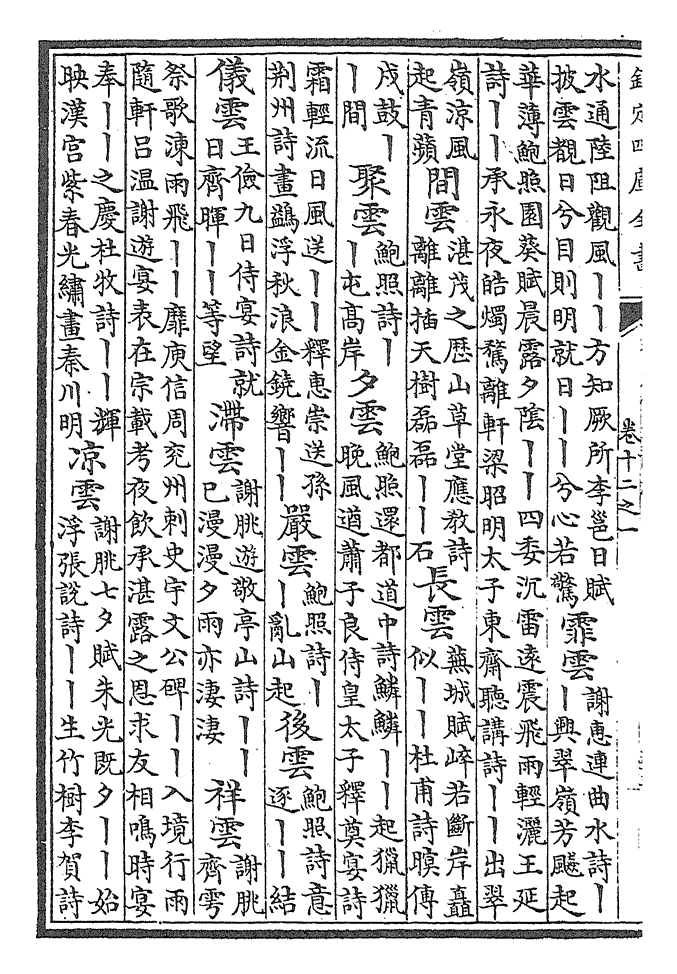 欽定四庫全書
卷十二之一
水通陸阻觀風丨丨方知厥所李邕日賦
披雲觀日兮目則明就日丨丨兮心若驚
霏雲
謝惠連曲水詩丨
丨興翠嶺芳飇起
華薄鮑照園葵賦晨露夕陰丨丨四委沉雷遠震飛雨輕灑王延
詩丨丨承永夜皓燭騖離軒梁昭明太子東齋聽講詩丨丨出翠
嶺涼風
起青蘋
間雲
湛茂之歴山草堂應教詩
離離插天樹磊磊丨丨石
長雲
蕪城賦崪若斷岸矗
似丨丨杜甫詩暝傳
戍鼓丨
丨間
聚雲
鮑照詩丨
丨屯髙岸
夕雲
鮑照還都道中詩鱗鱗丨丨起獵獵
晚風遒蕭子良侍皇太子釋奠宴詩
霜輕流日風送丨丨釋惠崇送孫
荆州詩畫鷁浮秋浪金鐃響丨丨
嚴雲
鮑照詩丨
丨亂山起
後雲
鮑照詩意
逐丨丨結
儀雲
王儉九日侍宴詩就
日齊暉丨丨等望
滯雲
謝朓遊敬亭山詩丨丨
已漫漫夕雨亦凄凄
祥雲
謝朓
齊雩
祭歌涷雨飛丨丨靡庾信周兖州刺史宇文公碑丨丨入境行雨
隨軒吕温謝遊宴表在宗載考夜飲承湛露之恩求友相鳴時宴
奉丨丨之慶杜牧詩丨丨輝
映漢宫紫春光繡畫秦川明
凉雲
謝朓七夕賦朱光既夕丨丨始
浮張說詩丨丨生竹樹李賀詩